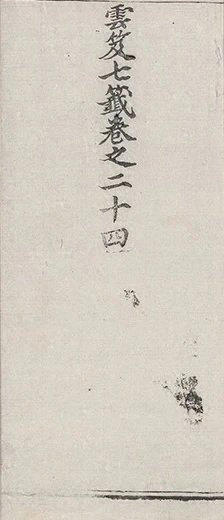 雲笈七籤卷之二十四